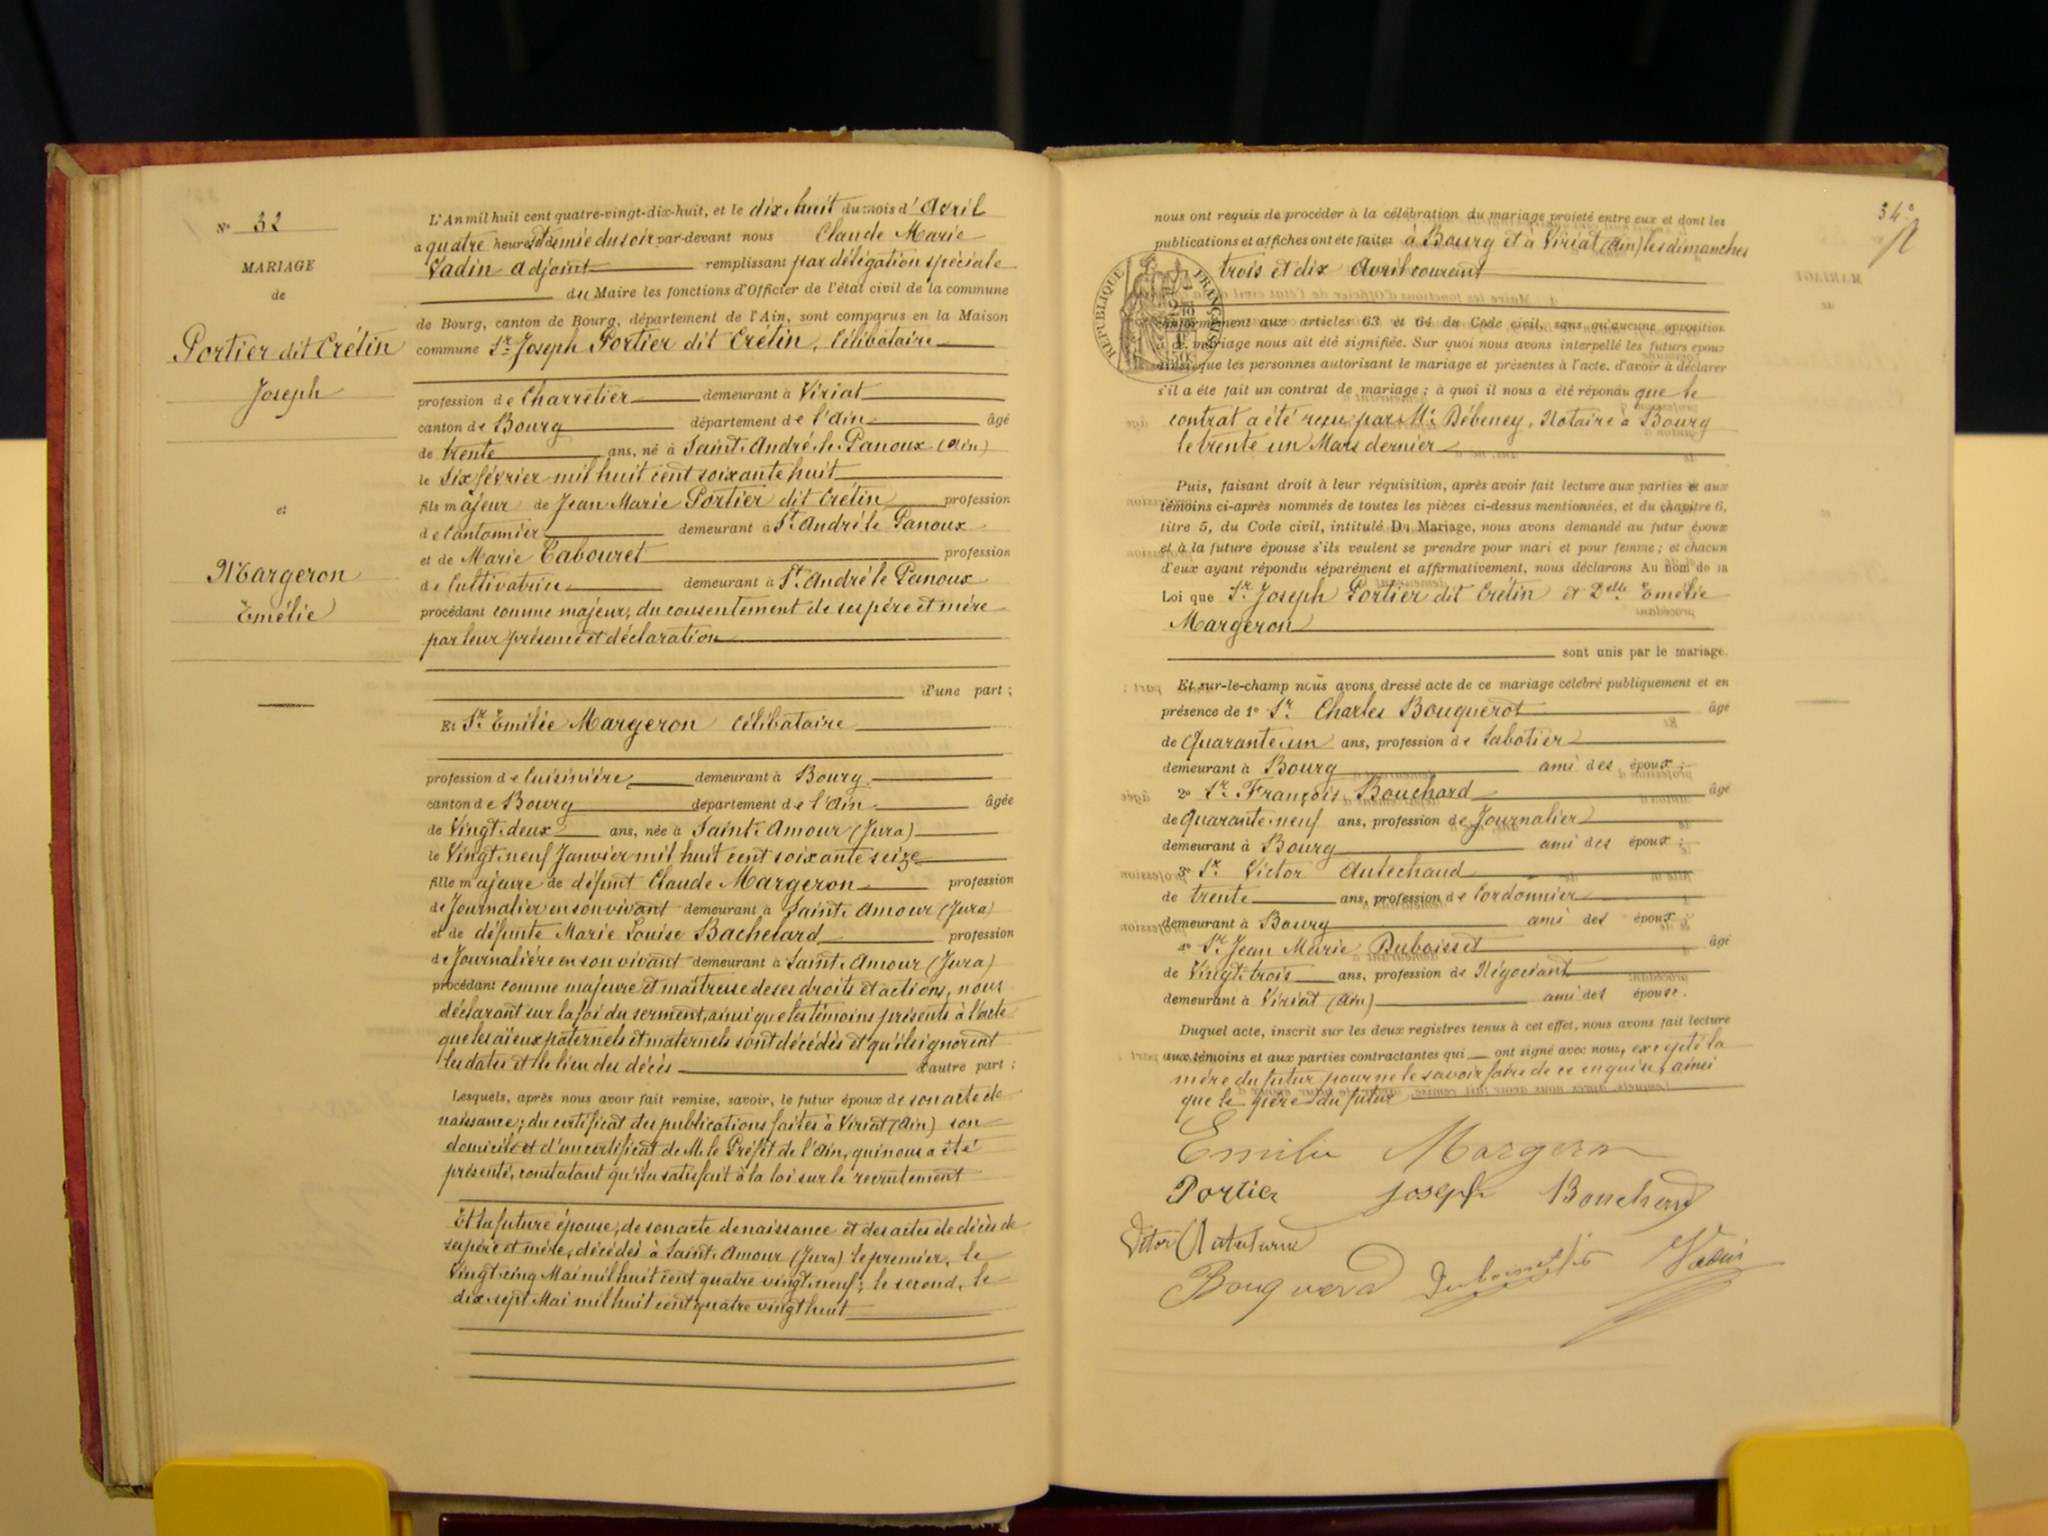 N° 32
MARIAGE
de
Portier dit Crétin
Joseph
et
Margeron
Emélie
L'An mil huit cent quatre-vingt-dix-huit, et le dix huit du mois d'Avril
à quatre heures et demie du soir par-devant nous Claude Marie
Vadin adjoint remplissant par délégation spéciale
du Maire les fonctions d'Officier de l'état civil de la commune
de Bourg, canton de Bourg, département de l'Ain, sont comparus en la Maison
commune Sr Joseph Portier dit Crétin, Célibataire
profession de Charretier demeurant à Viriat
canton de Bourg département de l'Ain âgé
de trente ans, né à Saint André le Panoux (Ain)
le Six février mil huit cent soixante huit
fils majeur de Jean Marie Portier dit Crétin profession
de Cantonnier demeurant à St André le Panoux
et de Marie Tabouret profession
de Cultivatrice demeurant à St André le Panoux
procédant comme majeur, du consentement de ses père et mère
par leur présence et déclaration
d'une part ;
Et Sr Emélie Margeron Célibataire
profession de Cuisinière demeurant à Bourg
canton de Bourg département de l'Ain âgée
de Vingt deux ans, née à Saint Amour (Jura)
le Vingt neuf Janvier mil huit cent soixante seize
fille majeure de défunt Claude Margeron profession
de Journalier en son vivant demeurant à Saint Amour (Jura)
et de défunte Marie Louise Bachelard profession
de Journalière en son vivant demeurant à Saint Amour (Jura)
procédant comme majeure et maîtresse de ses droits et actions, nous
déclarant sur la foi du serment, ainsi que les témoins présents à l'acte
que les aïeux paternels et maternels sont décédés et qu'ils ignorent
les dates et le lieu des décès d'autre part ;
Lesquels, après nous avoir fait remise, savoir, le futur époux de son acte de
naissance ; du certificat des publications faites à Viriat (Ain) son
domicile et d'un certificat de M. le Préfet de l'Ain, qui nous a été
présenté, constatant qu'il a satisfait à la loi sur le recrutement
Et la future épouse, de son acte de naissance et des actes de décès de
ses père et mère, décédés à Saint Amour (Jura) le premier, le
Vingt cinq Mai mil huit cent quatre vingt neuf ; le second, le
dix sept Mai mil huit cent quatre vingt huit
34e
nous ont requis de procéder à la célébration du mariage projeté entre eux et dont les
publications et affiches ont été faites à Bourg et à Viriat (Ain) les dimanches
trois et dix Avril courant
RÉPUBLIQUE FRANÇAISE
conformément aux articles 63 et 64 du Code civil, sans qu'aucune opposition
à ce mariage nous ait été signifiée. Sur quoi nous avons interpellé les futurs époux
ainsi que les personnes autorisant le mariage et présentes à l'acte, d'avoir à déclarer
s'il a été fait un contrat de mariage ; à quoi il nous a été répondu que le
contrat a été reçu par Me Débeney, Notaire à Bourg
le trente un Mars dernier
Puis, faisant droit à leur réquisition, après avoir fait lecture aux parties et aux
témoins ci-après nommés de toutes les pièces ci-dessus mentionnées, et du chapitre 6,
titre 5, du Code civil, intitulé Du Mariage, nous avons demandé au futur époux
et à la future épouse s'ils veulent se prendre pour mari et pour femme ; et chacun
d'eux ayant répondu séparément et affirmativement, nous déclarons Au nom de la
Loi que Sr Joseph Portier dit Crétin et Delle Emélie
Margeron
sont unis par le mariage.
Et sur-le-champ nous avons dressé acte de ce mariage célébré publiquement et en
présence de 1° Sr Charles Bouquerot âgé
de Quarante un ans, profession de Sabotier
demeurant à Bourg ami des époux ;
2° Sr François Bouchard âgé
de Quarante neuf ans, profession de Journalier
demeurant à Bourg ami des époux ;
3° Sr Victor Autechaud
de trente ans, profession de Cordonnier
demeurant à Bourg ami des époux ;
4° Sr Jean Marie Duboisset âgé
de Vingt trois ans, profession de Négociant
demeurant à Viriat (Ain) ami des époux.
Duquel acte, inscrit sur les deux registres tenus à cet effet, nous avons fait lecture
aux témoins et aux parties contractantes qui ont signé avec nous, excepté la
mère du futur pour ne le savoir faire de ce enquise, ainsi
que le père du futur
Emilie Margeron
Portier Joseph Bouchard
Bouquerd Vadin